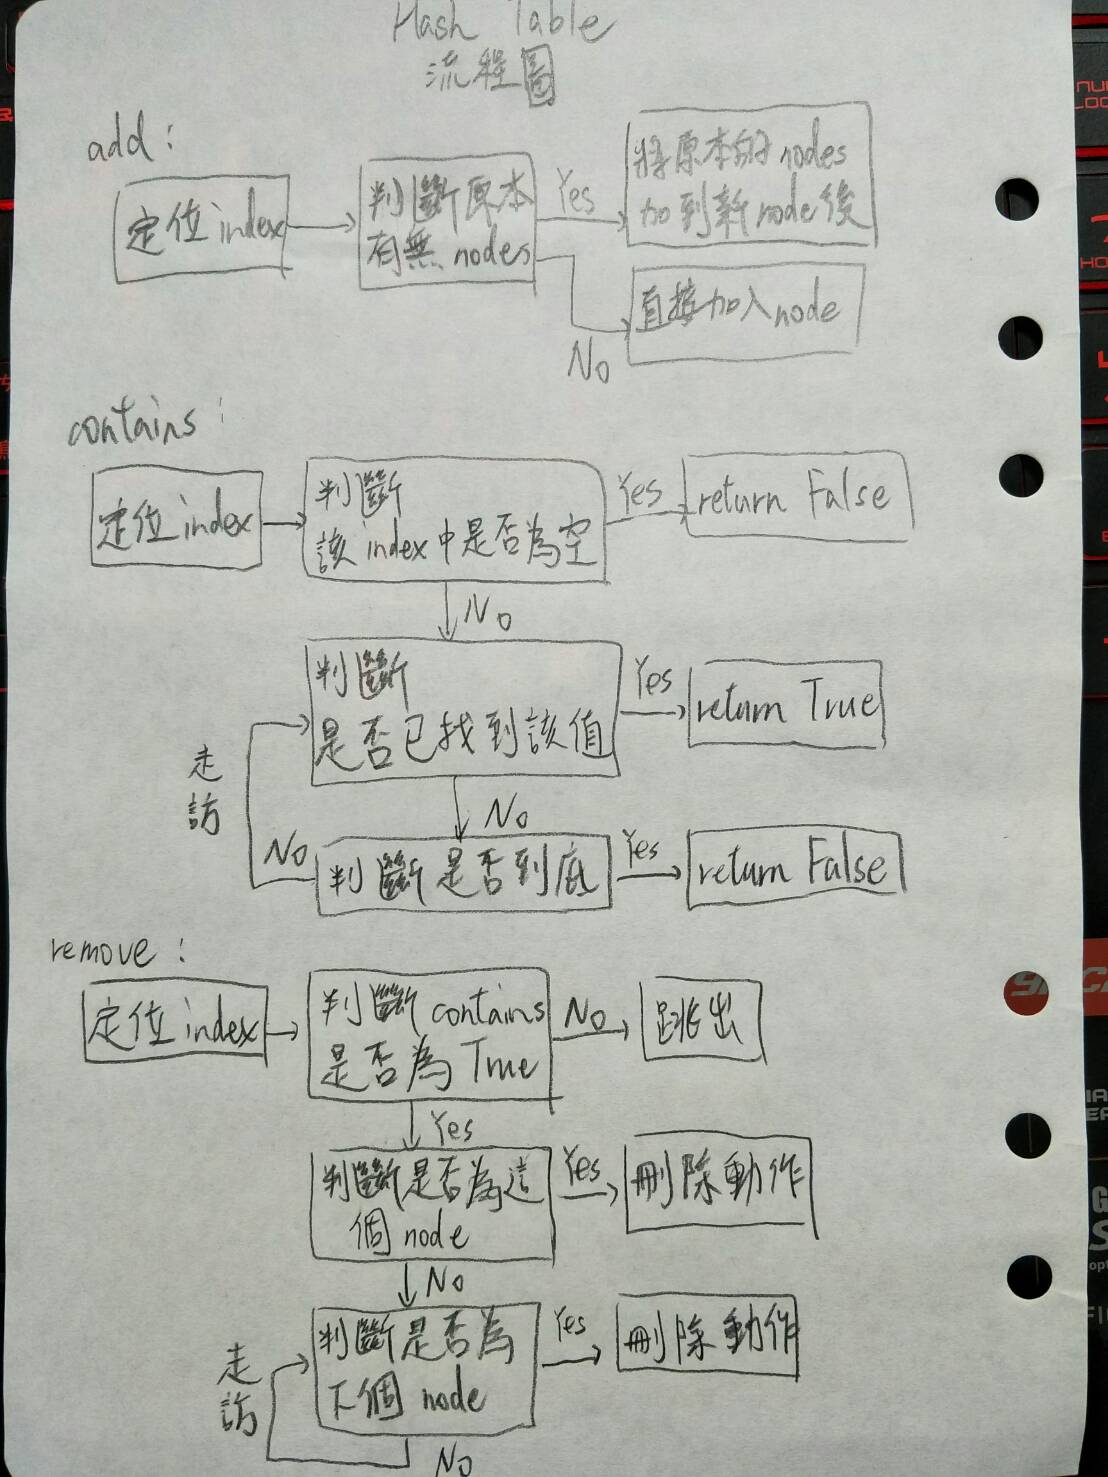 Hash Table
流程圖
add:
定位index
判斷原本
有無nodes
Yes
將原本的nodes
加到新node後
直接加入node
No
contains:
定位index
判斷
該index中是否為空
Yes
return False
No
判斷
是否已找到該值
Yes
return True
走訪
No
No
判斷是否到底
Yes
return False
remove:
定位index
判斷contains
是否為True
No
跳出
Yes
判斷是否為這
個node
Yes
刪除動作
No
判斷是否為
下個node
Yes
刪除動作
走訪
No